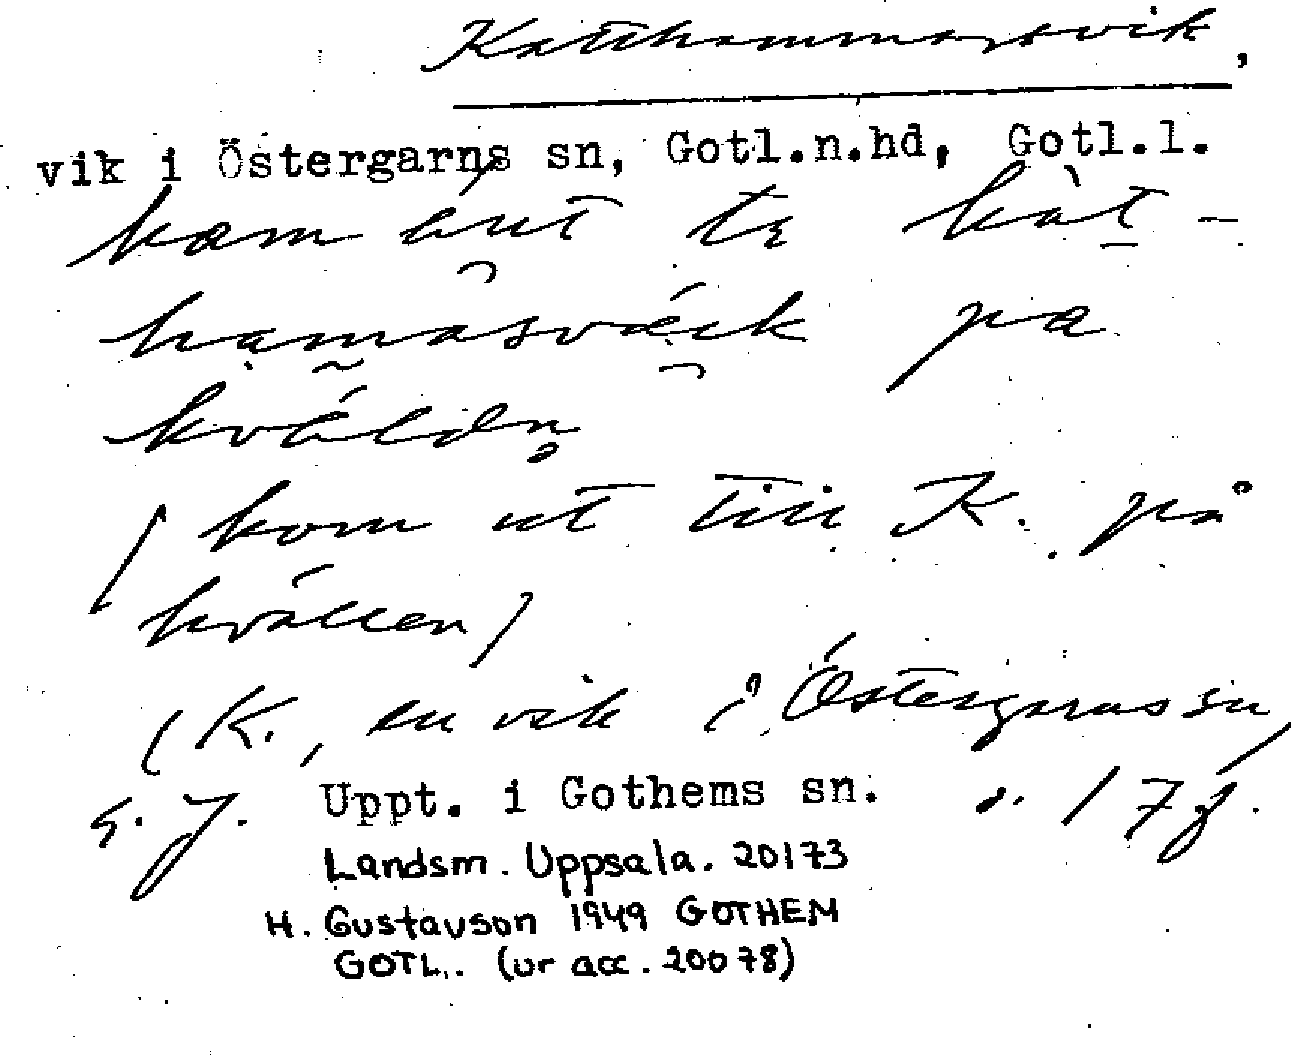 Katthammarsvik,
vik i Östergarns sn, Gotl.n.hd, Gotl.l.
kam äut te kat-
hamasväik pa
kväldn
/kom ut till K. på
kvällen/
(K., en vik i Östergarns sn)
Uppt. i Gothems sn. s. 17f.
Landsm. Uppsala. 20173
H. Gustavson 1949 GOTHEM
GOTL. (ur acc. 20078)